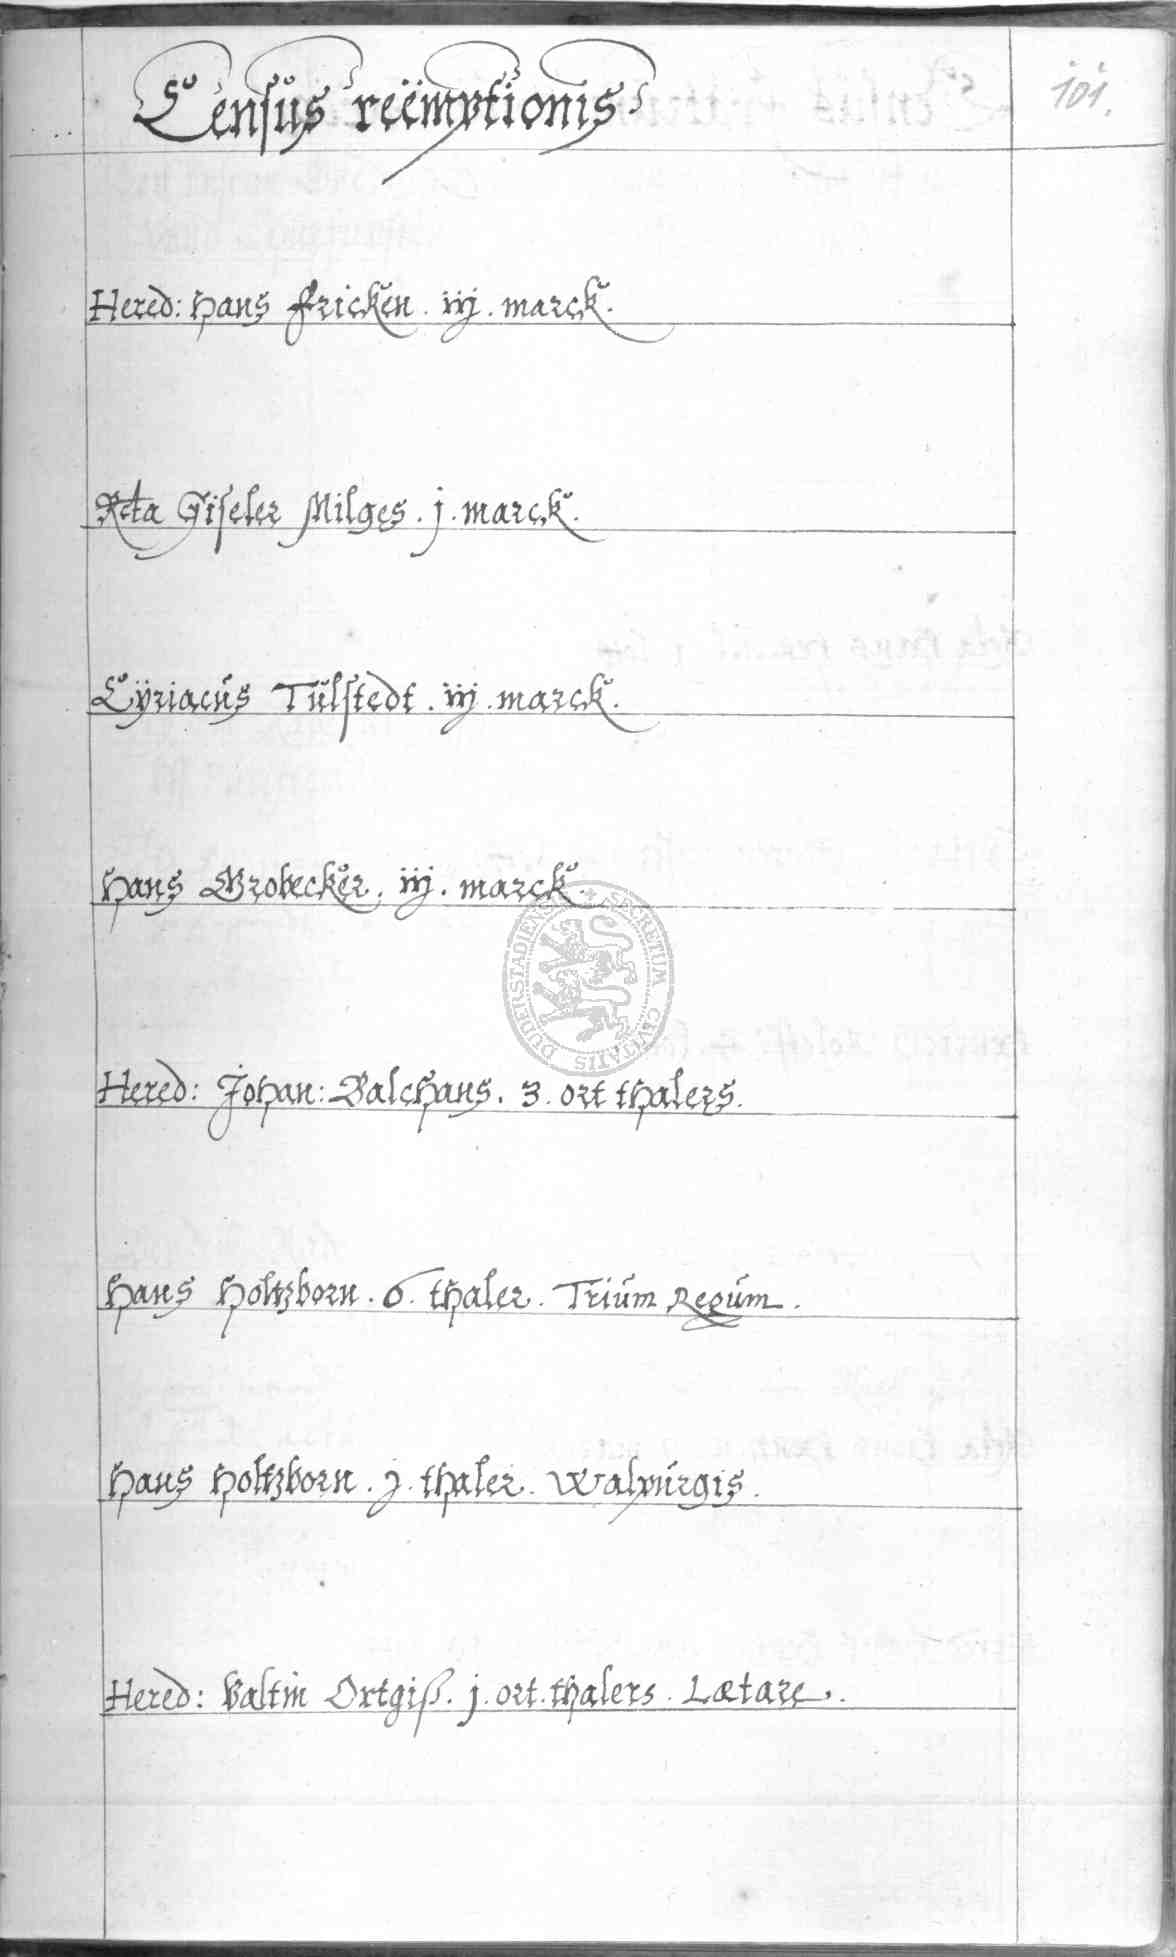 Censūs reëmptionis
101.
Hered: Hans Fricken. iij. marck.
Rcta Giseler Milges. j. marck.
Cÿriacus Tulstedt. iij. marck.
Hans Brobecker. iij. marck.
SECRETUM CIVITATIS DUDERSTADIENSIS
Hered: Johan: Balchans. 3. ort thalers.
Hans Holtzborn. 6. thaler. Trium Regum.
Hans Holtzborn. j. thaler. Walpurgis.
Hered: Valtin Ortgiß. j. ort. thalers. Lætare.